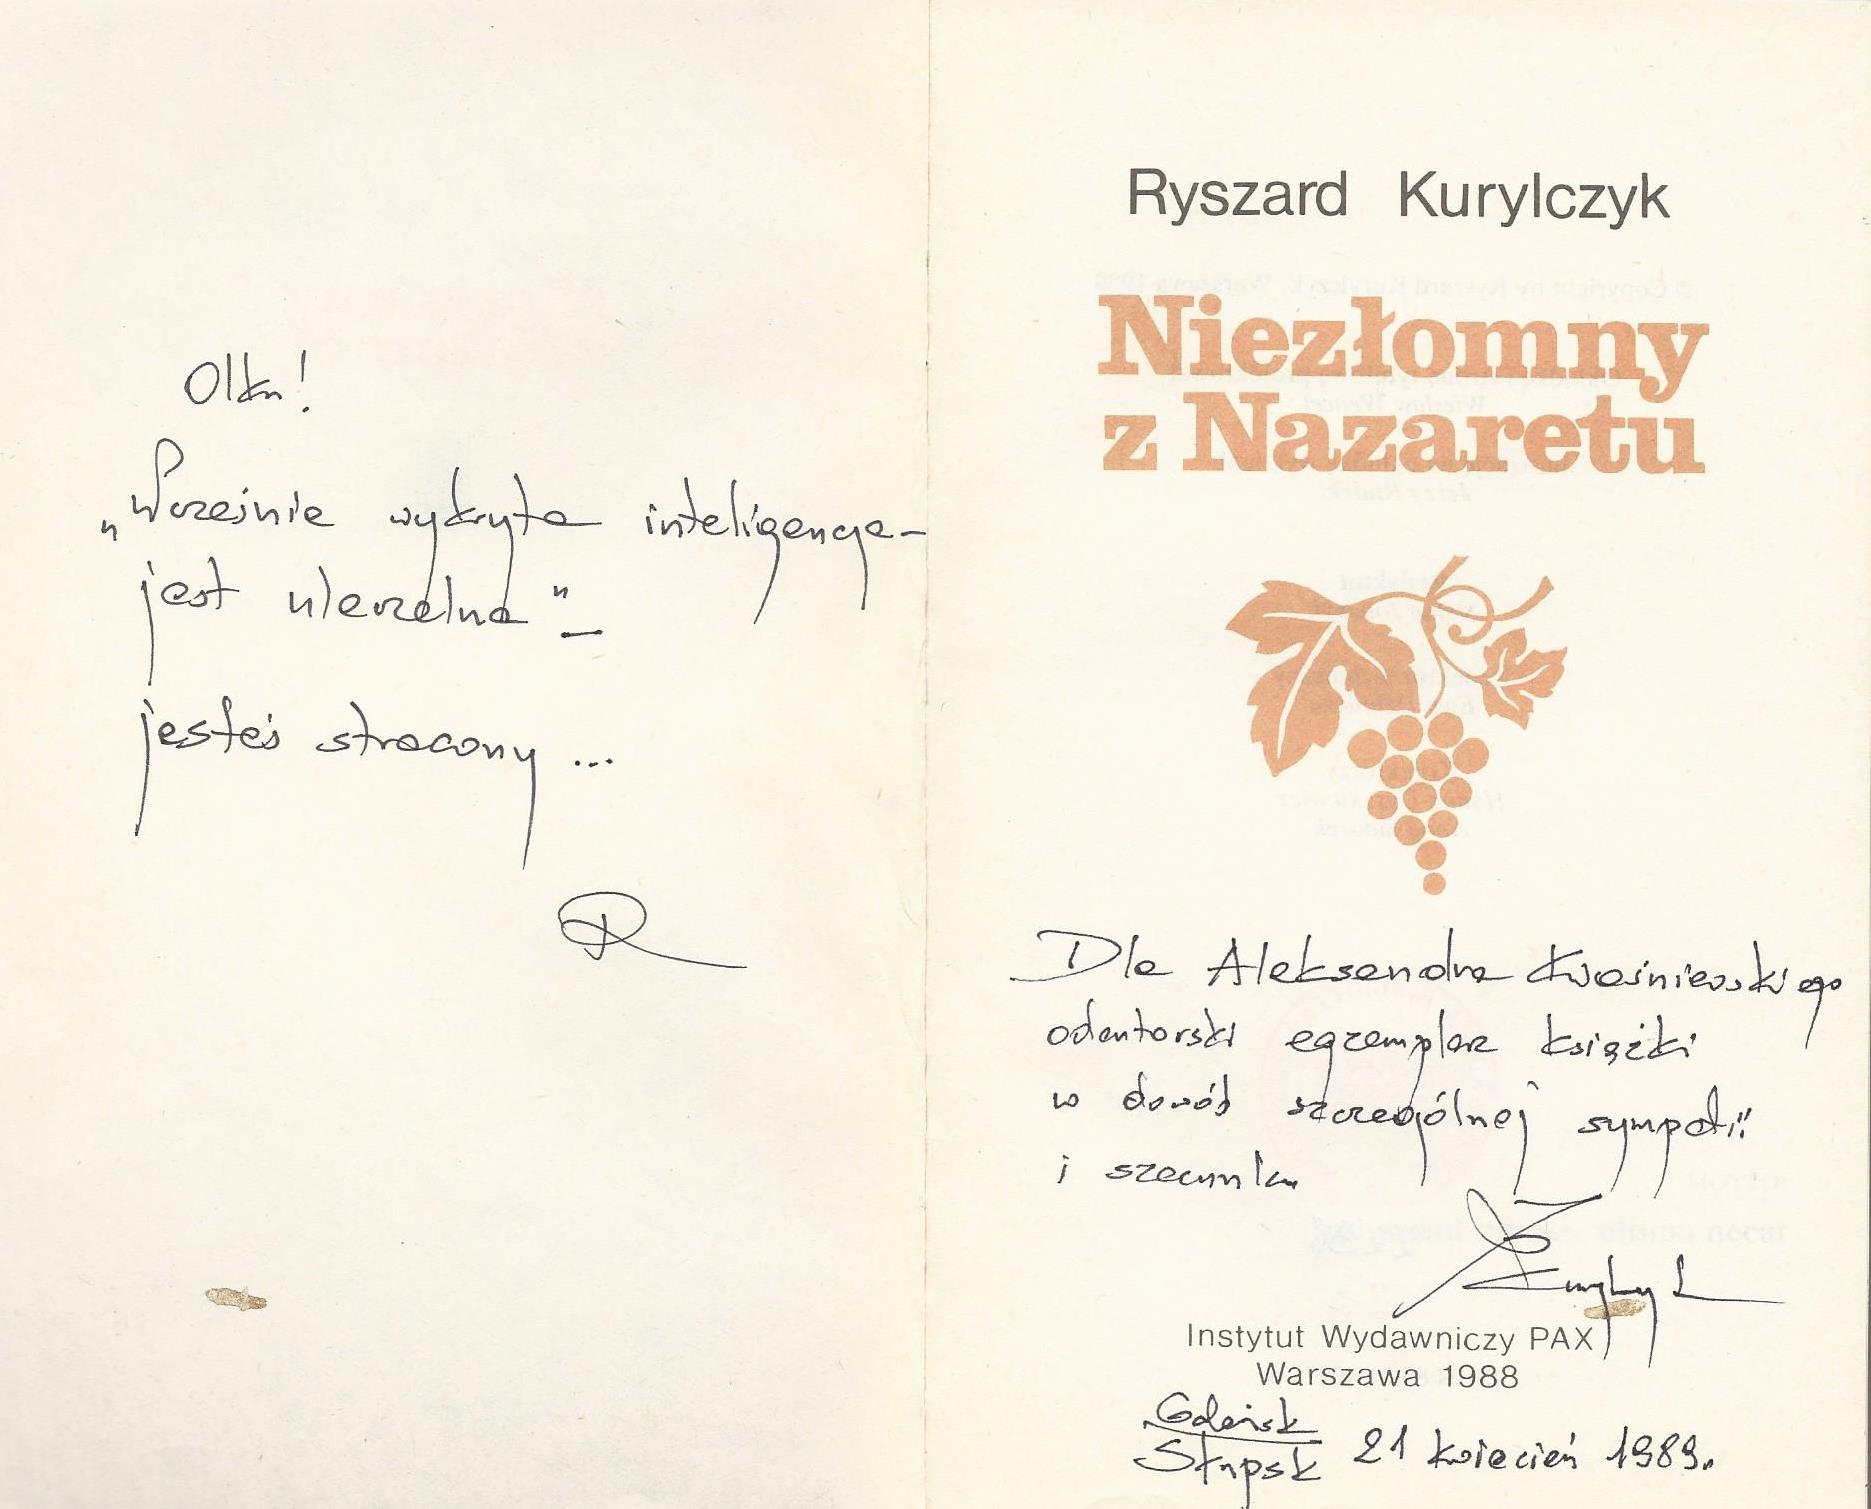 Olku!
„Wcześnie wykryta inteligencja –
jest uleczalna" –
jesteś stracony ...
R
Ryszard Kurylczyk
Niezłomny
z Nazaretu
Dla Aleksandra Kwaśniewskiego
odautorski egzemplarz książki
w dowód szczególnej sympatii
i szacunku
Instytut Wydawniczy PAX
Warszawa 1988
Gdańsk
Słupsk 21 kwiecień 1989.